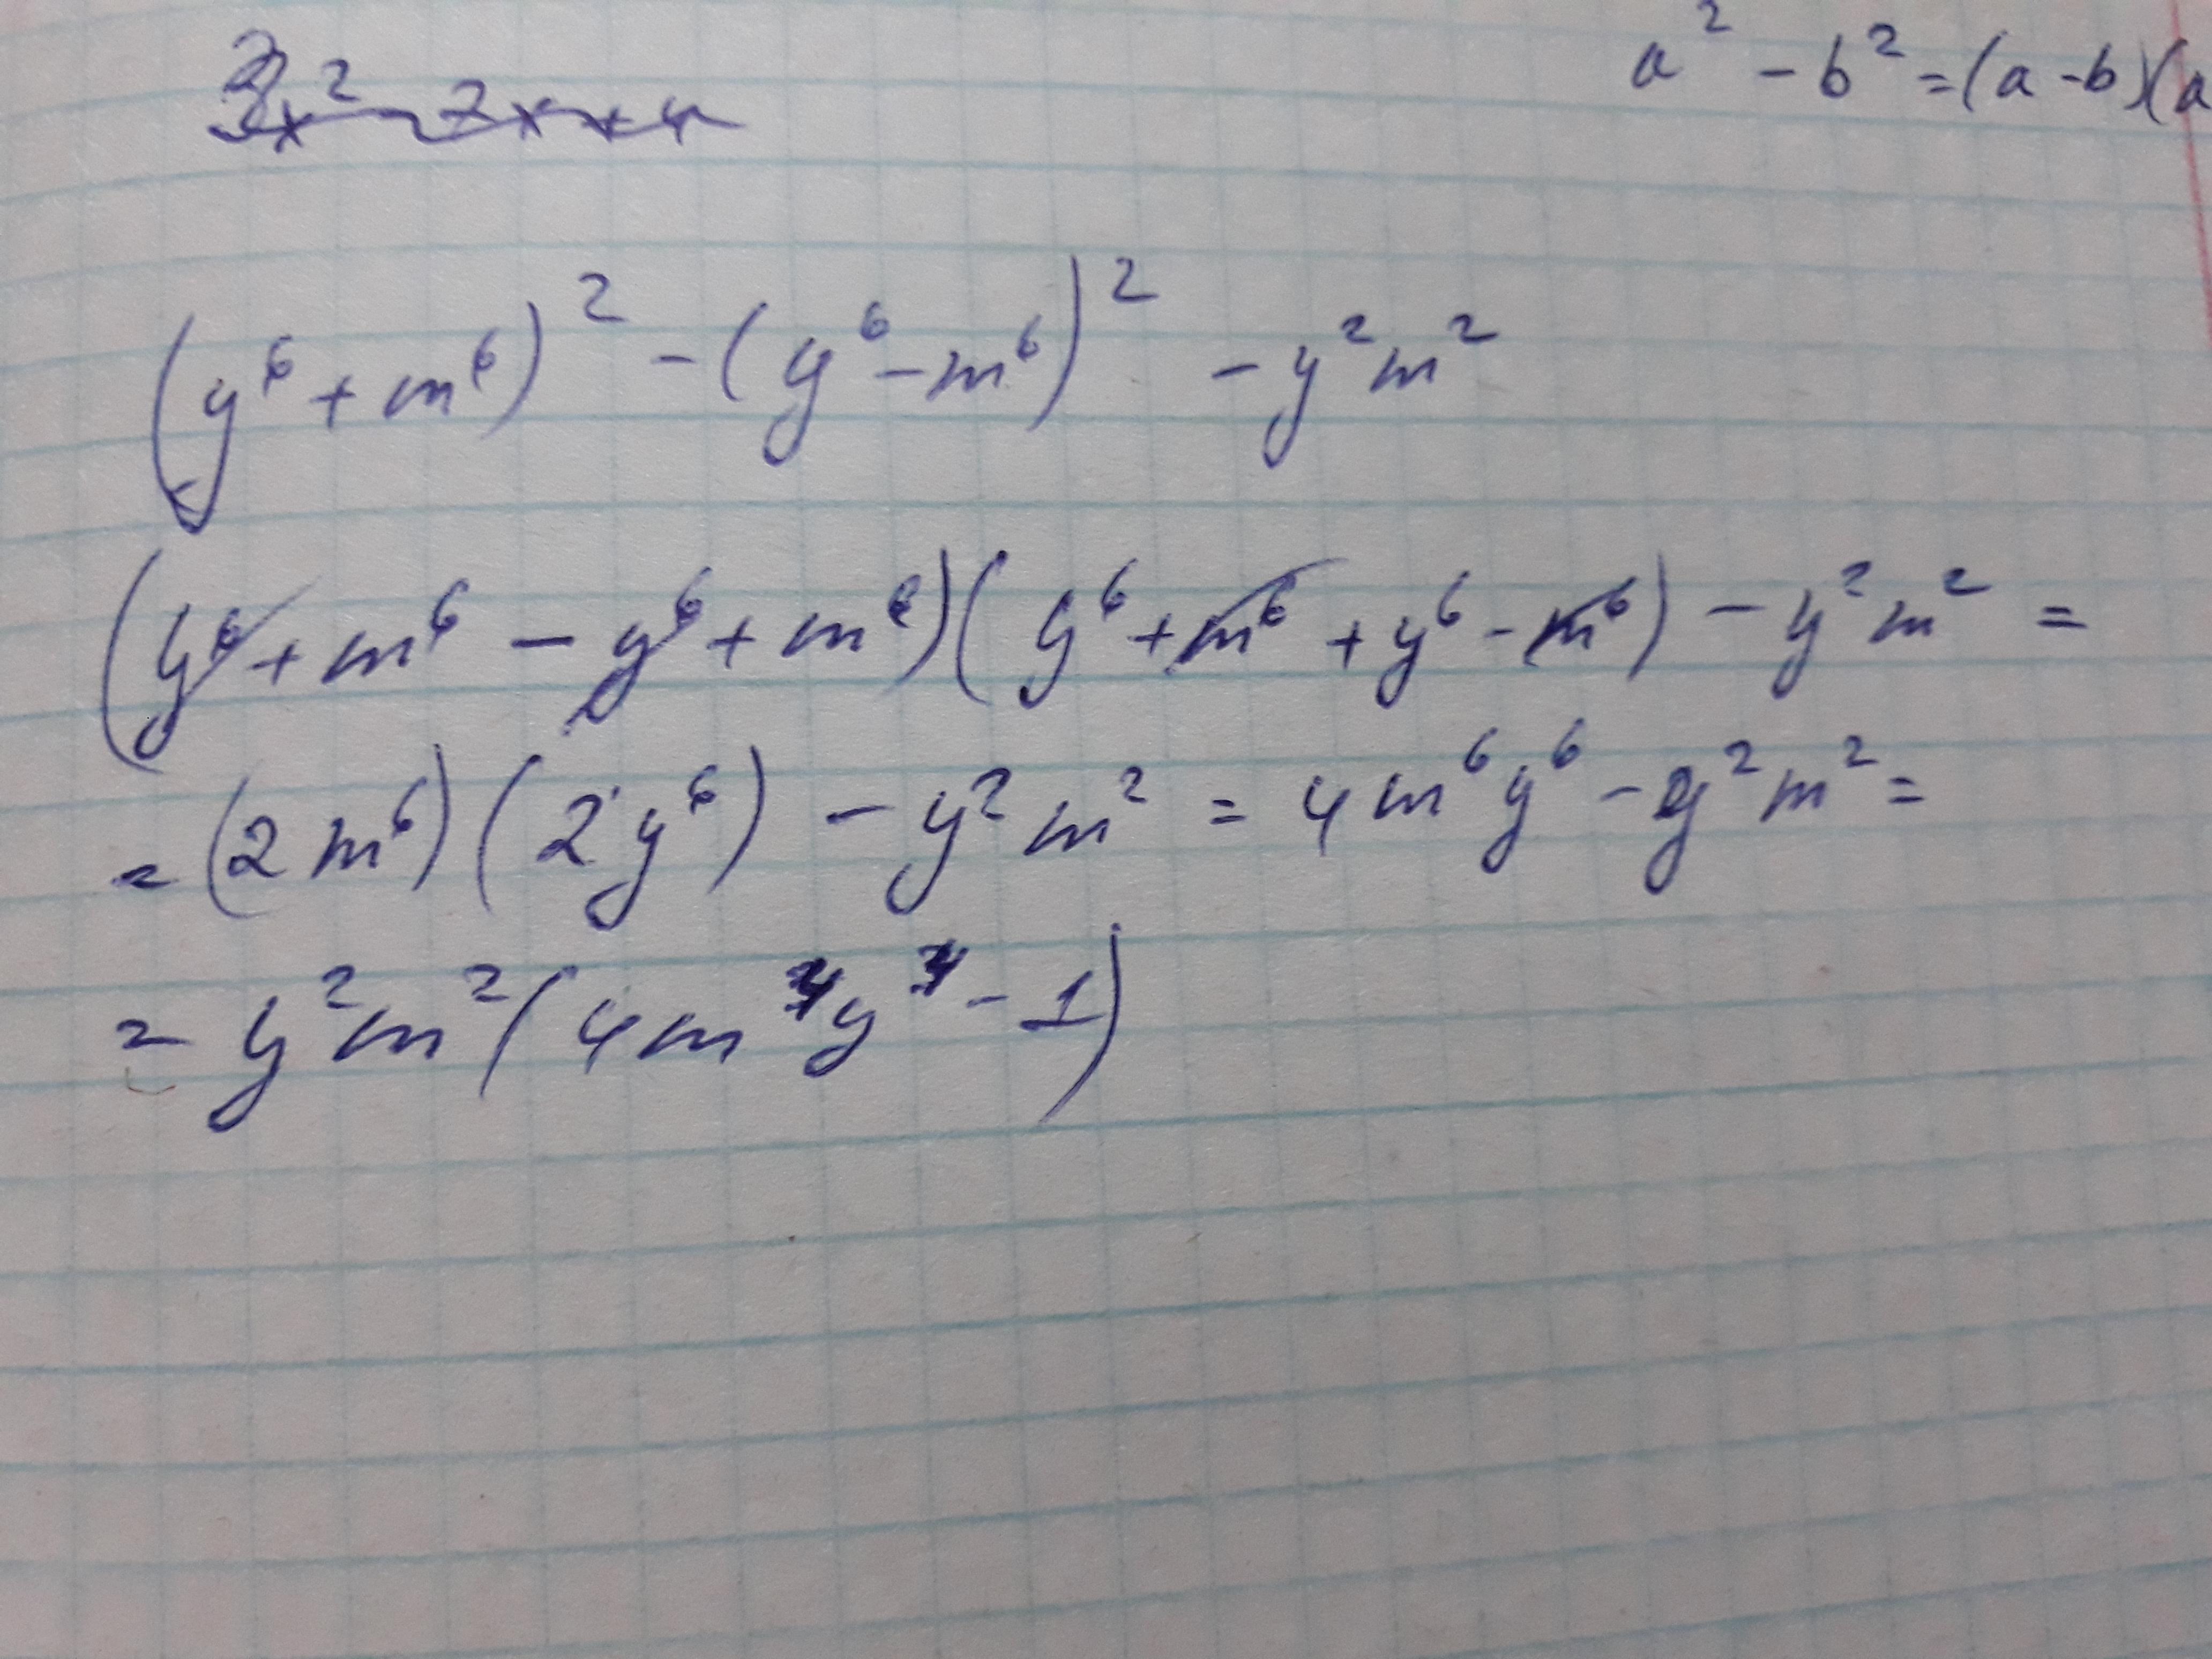 3x² - 7x + 4
a² - b² = (a - b)(a
(y⁶ + m⁶)² - (y⁶ - m⁶)² - y²m²
(y⁶ + m⁶ - y⁶ + m⁶)(y⁶ + m⁶ + y⁶ - m⁶) - y²m² =
= (2m⁶)(2y⁶) - y²m² = 4m⁶y⁶ - y²m² =
= y²m²(4m⁴y⁴ - 1)